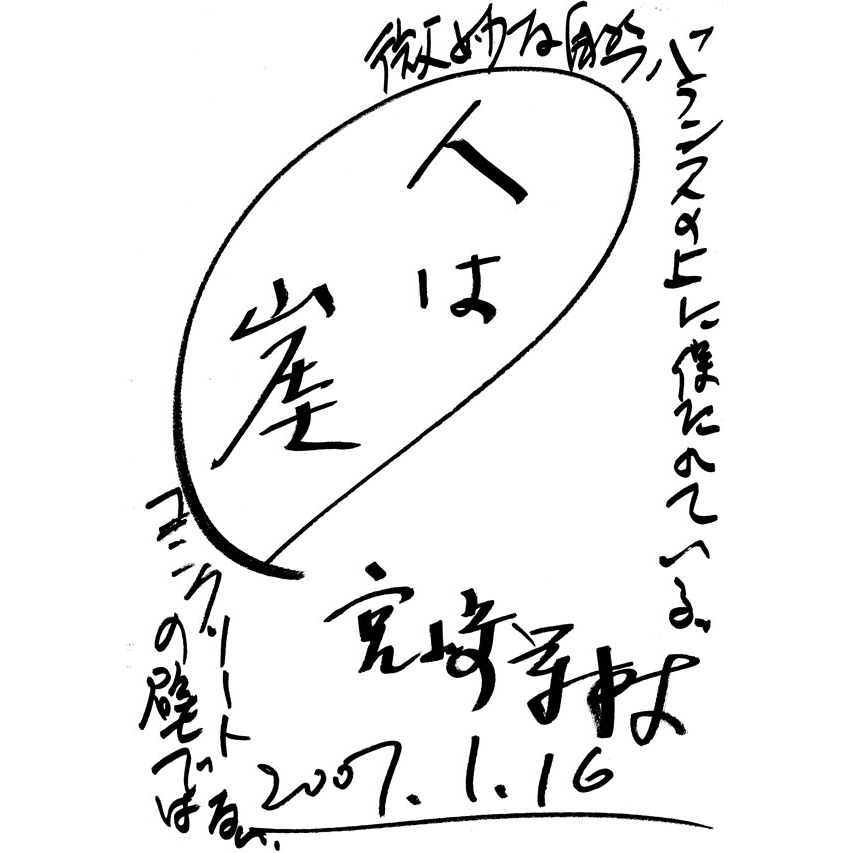 微妙な自然バランスの上に保たれている。
人は
崖
コンクリート
の壁ではない.
宮崎
2007.1.16